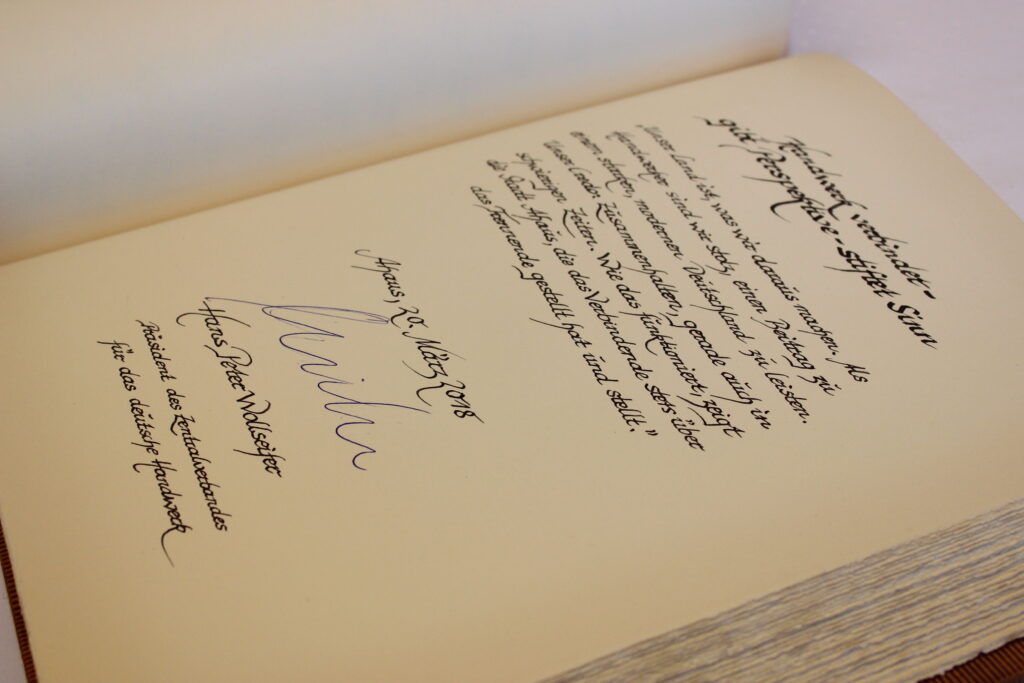 Handwerk verbindet -
gibt Perspektive - stiftet Sinn
"Unser Land ist, was wir daraus machen. Als
Handwerker sind wir stolz, einen Beitrag zu
einem starken, modernen Deutschland zu leisten.
Unser Land Zusammenhalten, gerade auch in
schwierigen Zeiten. Wie das funktioniert, zeigt
die Stadt Ahaus, die das Verbindende stets über
das Trennende gestellt hat und stellt."
Ahaus, 20. März 2018
Hans Peter Wollseifer
Präsident des Zentralverbandes
für das deutsche Handwerk